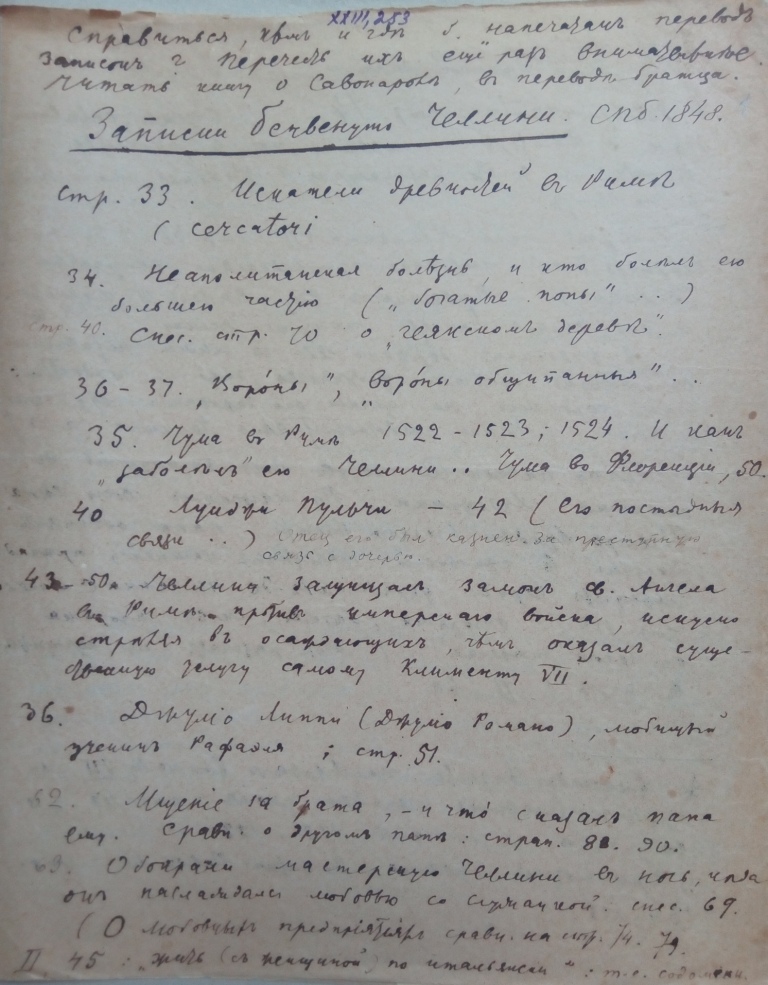 XXIII, 253
Справиться, кѣмъ и гдѣ б. напечатанъ переводъ
Записокъ? Перечесть ихъ ещё разъ внимательнѣе.
Читать книгу о Савонароле, въ переводѣ братца.
Записки Бенвенуто Челлини. СПб. 1848.
стр. 33. Искатели древностей въ Римѣ
( cercatori
34. Неаполитанская болѣзнь, и кто болѣлъ ею
большею частію („богатые попы" . . )
стр. 40. Снес. стр. 70 о „гваякскомъ деревѣ".
36 – 37. „Воро́ны", „воро́ны общипанныя" . .
35. Чума въ Римѣ 1522 – 1523; 1524. И какъ
„заболѣлъ" ею Челлини .. Чума во Флоренціи, 50.
40 Луиджи Пульчи – 42 (Его постыдныя
связи . . ) Отец его был казнен за преступную
связь с дочерью.
43 – 50. Челлини защищалъ замокъ св. Ангела
въ Римѣ противъ имперскаго войска, искусно
стрѣляя въ осаждающихъ, чѣмъ оказалъ суще-
ственную услугу самому Клименту VII.
36. Джуліо Липпи (Джуліо Романо), любимый
ученикъ Рафаэля ; стр. 51.
62. Мщеніе за брата, – и что́ сказалъ папа
ему. Сравн. о другомъ папѣ: стран. 88. 90.
69. Обокрали мастерскую Челлини въ ночь, когда
онъ наслаждался любовью со служанкой. снес. 69.
( О любовныхъ предпріятіяхъ сравн. на стр. 74. 79.
II 45 : „жить (съ женщиной) по итальянски" : т.-е. содомски.